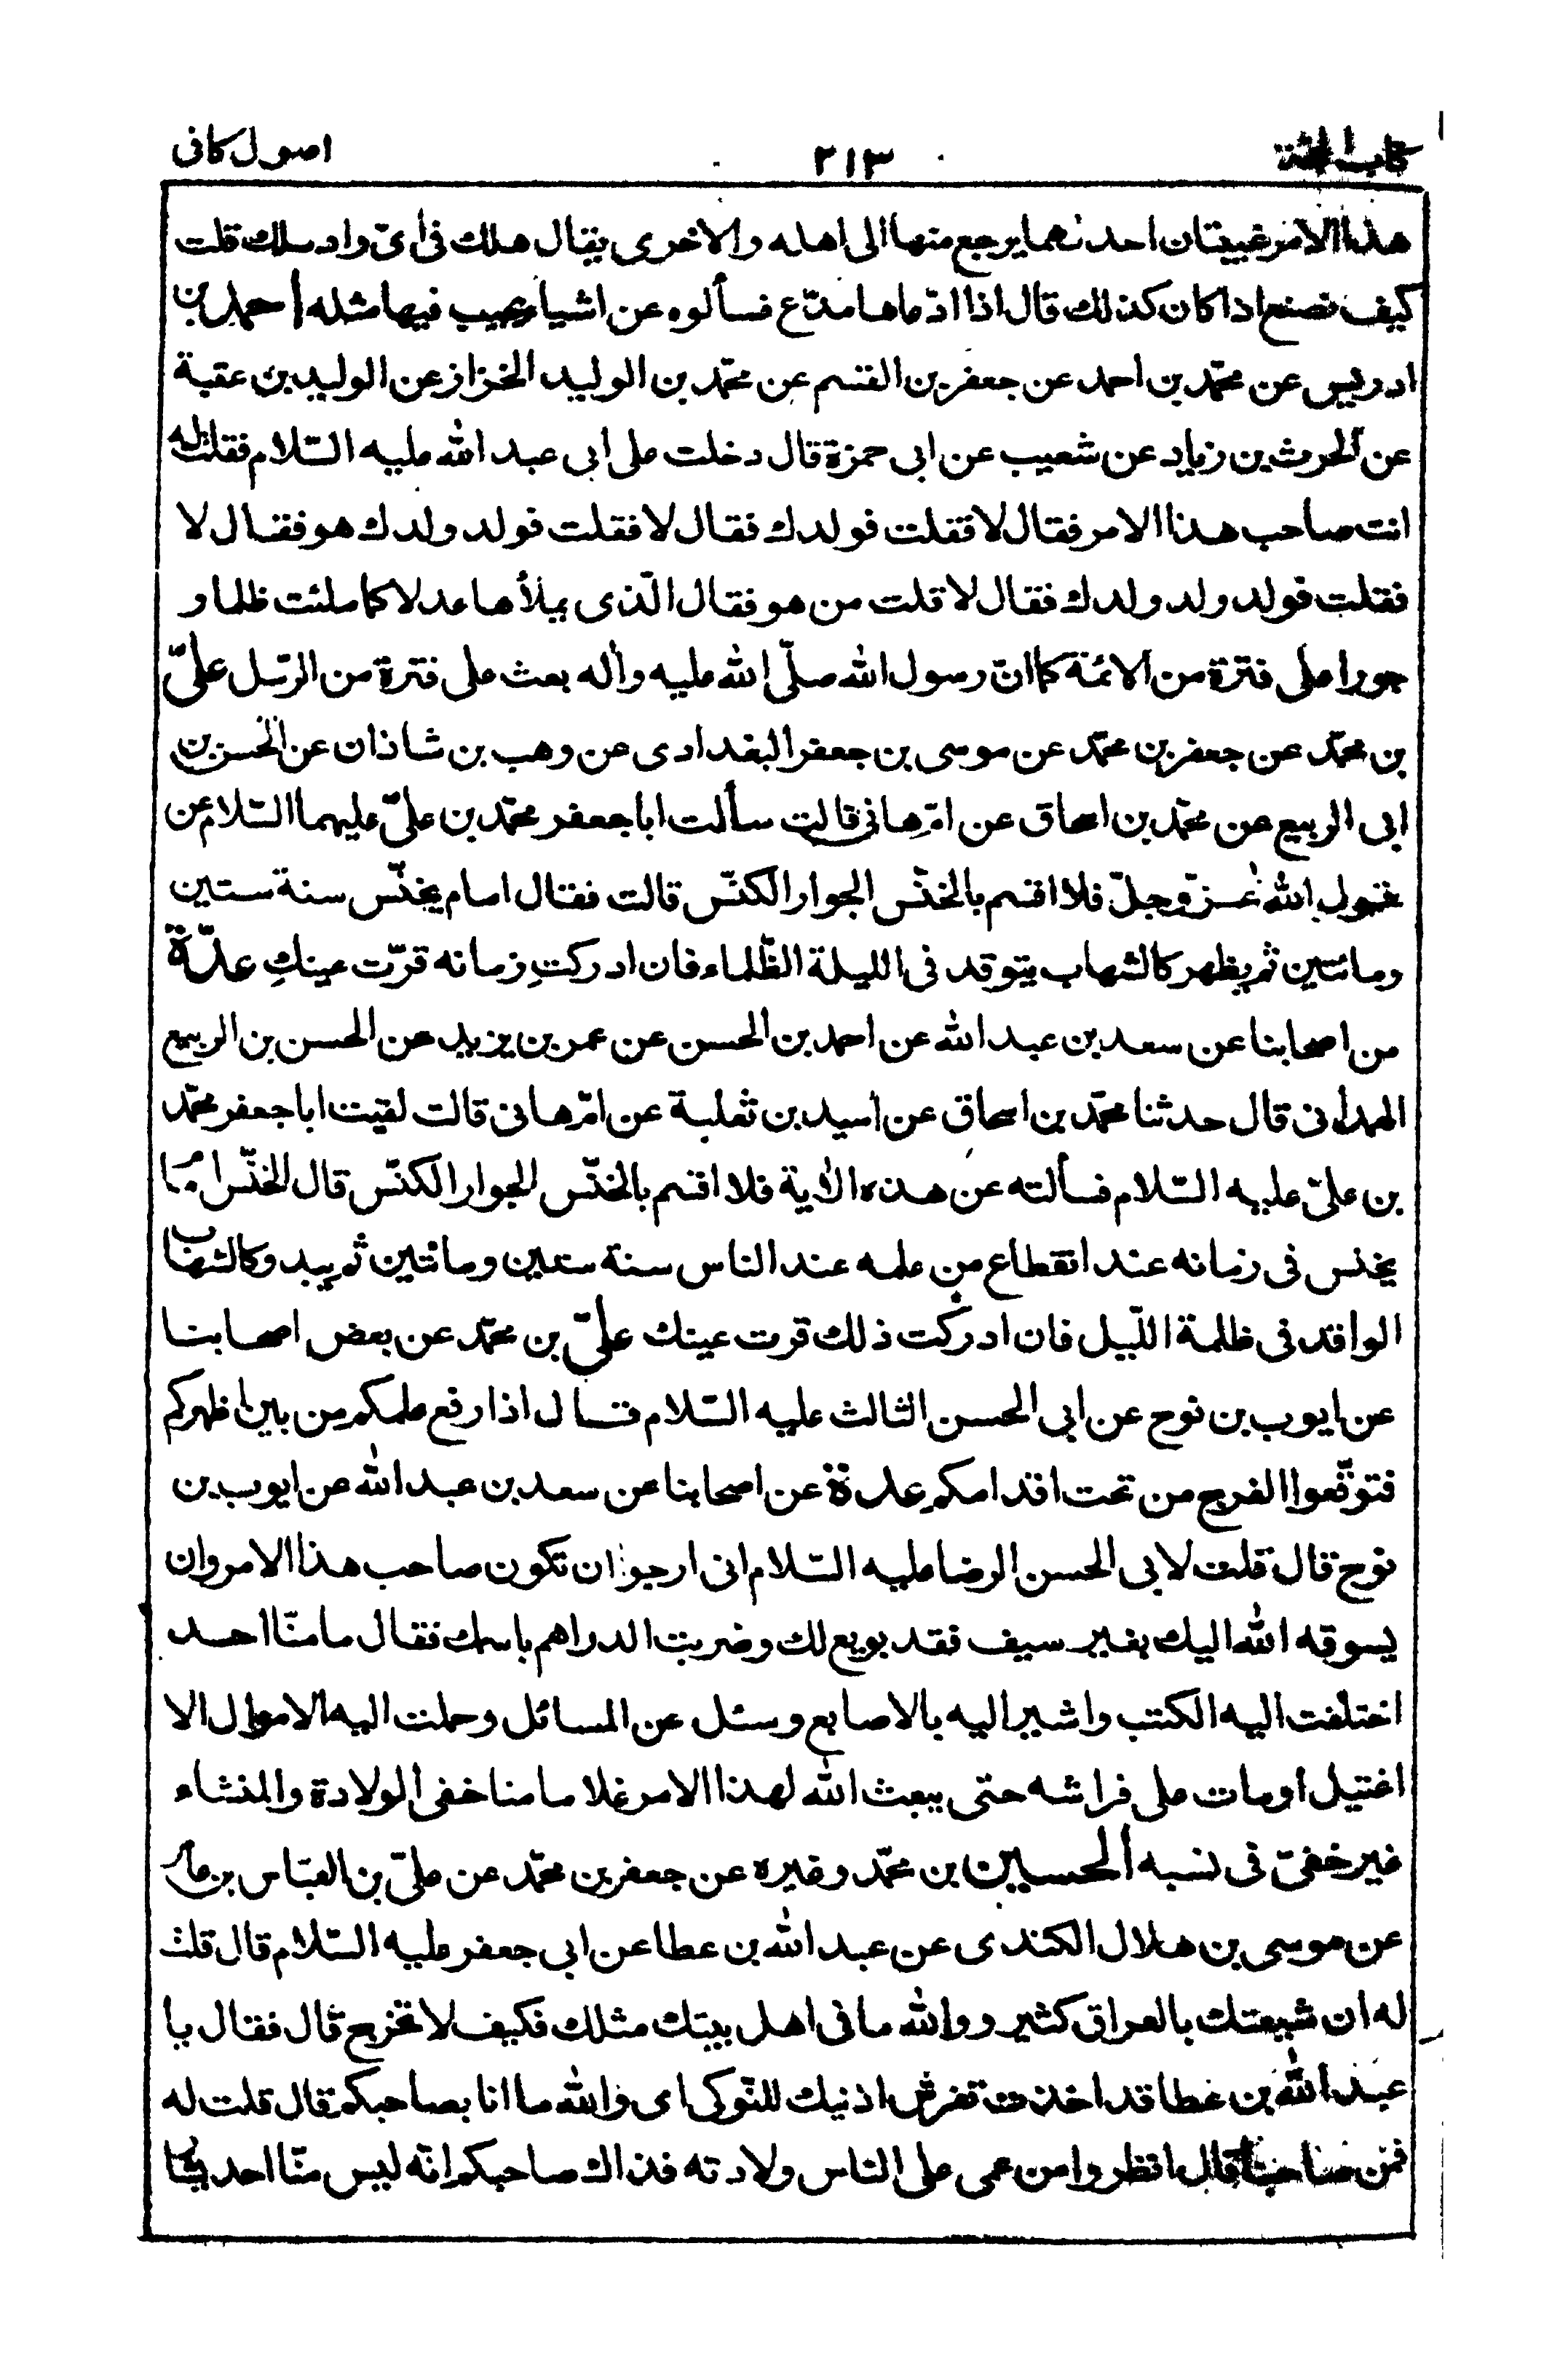 كتاب الحجّة ٢١٣ اصول كافى
هذا الامر غيبتان احدٰىهما يرجع منها الى اهله والاخرى يقال هلك فى اىّ واد سلك قلت
كيف نصنع اذا كان كذلك قال اذا ادّعاها مدّع فسألوه عن اشياء يجيب فيها مثله احمد بن
ادريس عن محمّد بن احمد عن جعفر بن القسم عن محمّد بن الوليد الخزاز عن الوليد بن عقبة
عن الحرث بن زياد عن شعيب عن ابى حمزة قال دخلت على أبى عبد الله عليه السّلام فقلت له
انت صاحب هذا الامر فقال لا فقلت فولدك فقال لا فقلت فولد ولدك هو فقال لا
فقلت فولد ولد ولدك فقال لا قلت من هو فقال الّذى يملأها عدلا كما ملئت ظلما و
جورا على فترة من الائمّة كما انّ رسول الله صلّى الله عليه واٰله بعث على فترة من الرّسل علىّ
بن محمّد عن جعفر بن محمّد عن موسى بن جعفر البغدادى عن وهب بن شاذان عن الحسن بن
ابى الربيع عن محمّد بن اسحاق عن امّ هانى قالت سألت ابا جعفر محمّد بن علىّ عليهما السّلام عن
قول الله عزّ وجلّ فلا اقسم بالخنّس الجوار الكنّس قالت فقال امام يخنّس سنة ستين
ومائتين ثم يظهر كالشهاب يتوقد فى الليلة الظّلماء فان ادركتِ زمانه قرّت عينكِ عدّة
من اصحابنا عن سعد بن عبد الله عن احمد بن الحسن عن عمر بن يزيد عن الحسن بن الربيع
الهمدانى قال حدثنا محمّد بن اسحاق عن اسيد بن ثعلبة عن امّ هانى قالت لقيت ابا جعفر محمّد
بن علىّ عليه السّلام فسألته عن هذه الاٰية فلا اقسم بالخنّس الجوار الكنّس قال الخنّس امام
يخنس فى زمانه عند انقطاع من علمه عند الناس سنة ستين ومائتين ثم يبدو كالشهاب
الواقد فى ظلمة اللّيل فان ادركت ذلك قرت عينك علىّ بن محمّد عن بعض اصحابنا
عن ايوب بن نوح عن ابى الحسن الثالث عليه السّلام قال اذا رفع علمكم من بين اظهركم
فتوقّعوا الفرج من تحت اقدامكم عدة عن اصحابنا عن سعد بن عبد الله عن ايوب بن
نوح قال قلت لابى الحسن الرضا عليه السّلام انى ارجوا ان تكون صاحب هذا الامر وان
يسوقه الله اليك بغير سيف فقد بويع لك وضربت الدراهم باسمك فقال ما منّا احد
اختلفت اليه الكتب واشير اليه بالاصابع وسئل عن المسائل وحملت اليه الاموال الا
اغتيل او مات على فراشه حتى يبعث الله لهذا الامر غلاما منا خفى الولادة والمنشاء
غير خفىّ فى نسبه الحسين بن محمّد وغيره عن جعفر بن محمّد عن علىّ بن العبّاس بن عامر
عن موسى بن هلال الكندى عن عبد الله بن عطا عن ابى جعفر عليه السّلام قال قلت
له ان شيعتك بالعراق كثير ووالله ما فى اهل بيتك مثلك فكيف لا تخرج قال فقال يا
عبد الله بن عطا قد اخذت تفرش اذنيك للنّوكى اى والله ما انا بصاحبكم قال قلت له
فمن صاحبنا قال انظروا من عمى على النّاس ولادته فذاك صاحبكم انّه ليس منّا احد يشا